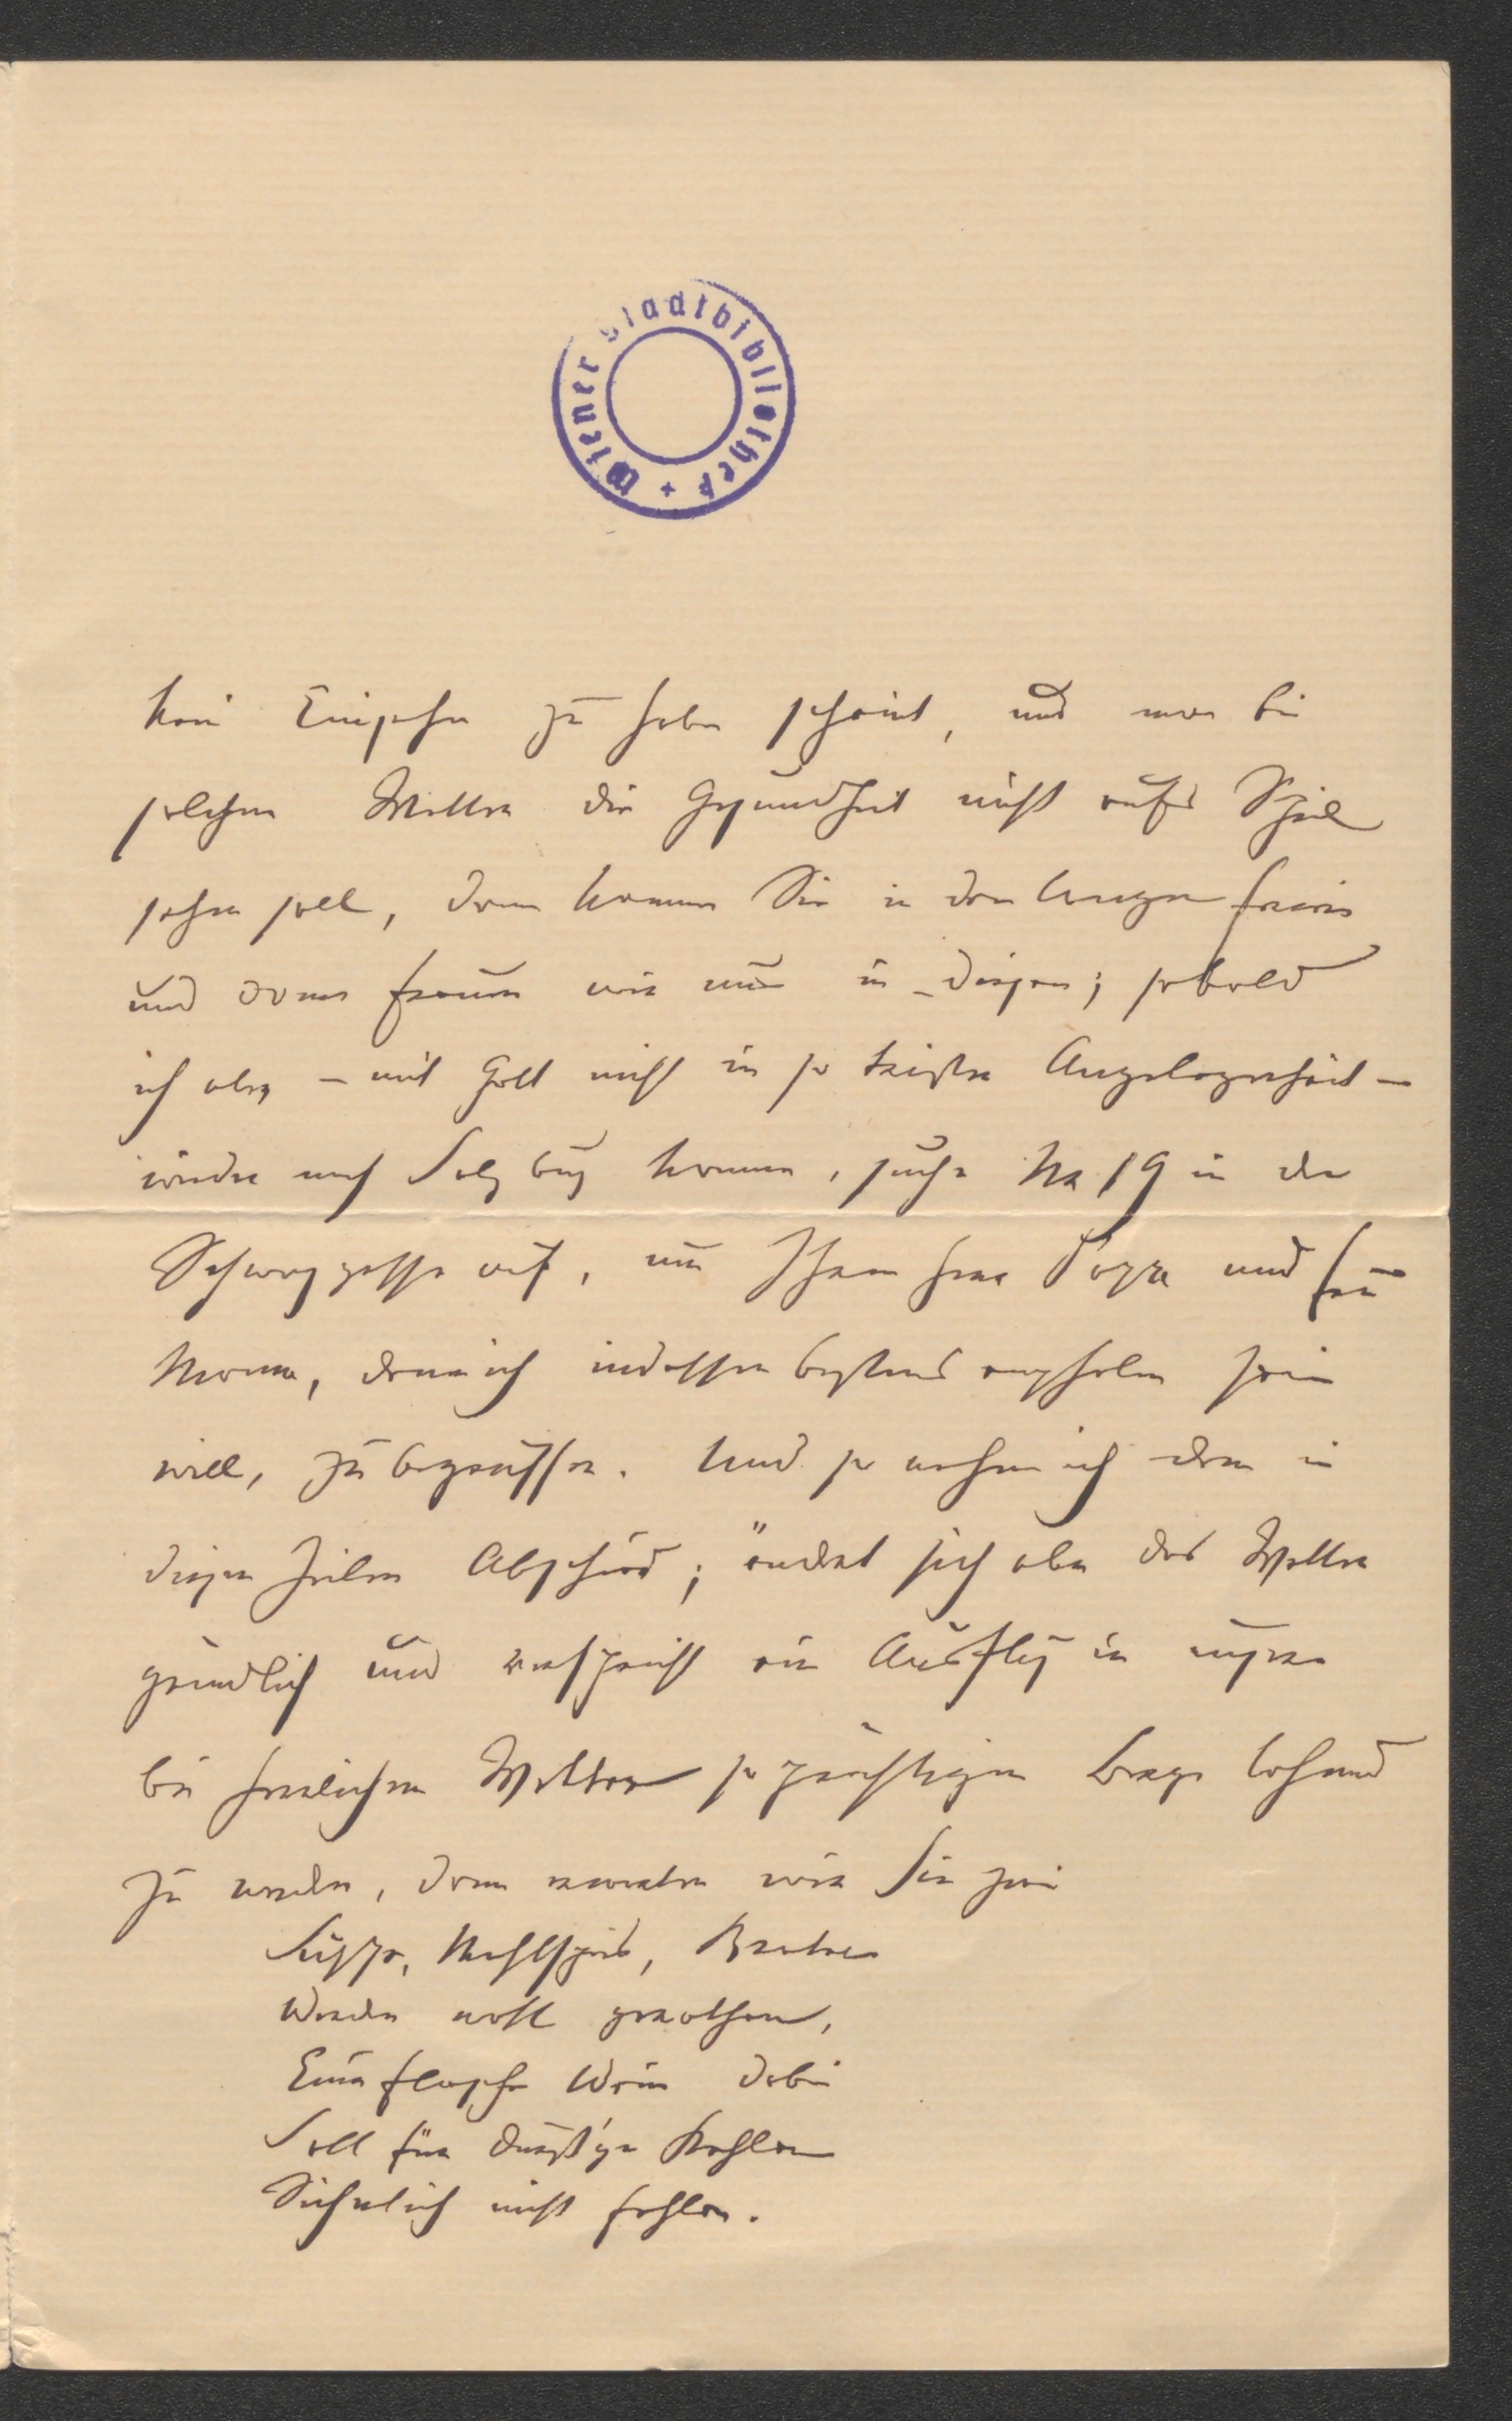 Wiener Stadtbibliothek
kein Einsehen zu haben scheint, und man bei
solchem Wetter die Gesundheit nicht aufs Spiel
setzen soll, dann kommen Sie in den
und dann freuen wir uns in diesem; sobald
ich aber – mit Gott nicht in so trister Angelegenheit –
wieder nach Salzburg komme, suche Nr 19 in der
Schwarzgasse auf, um Ihren Herrn Papa und Frau
Mama, denen ich indessen bestens empfohlen sein
will, zu begrüssen. Und so nehme ich denn in
diesen Zeilen Abschied; ändert sich aber das Wetter
gründlich und verspricht ein Ausflug in unsere
bei herrlichem Wetter so prächtigen Berge lohnend
zu werden, dann erwarten wir Sie zwei
Suppe, Mehlspeis, Braten
Werden wohl gerathen,
Eine Flasche Wein dabei
Soll für durst'ge Kehlen
Sicherlich nicht fehlen.